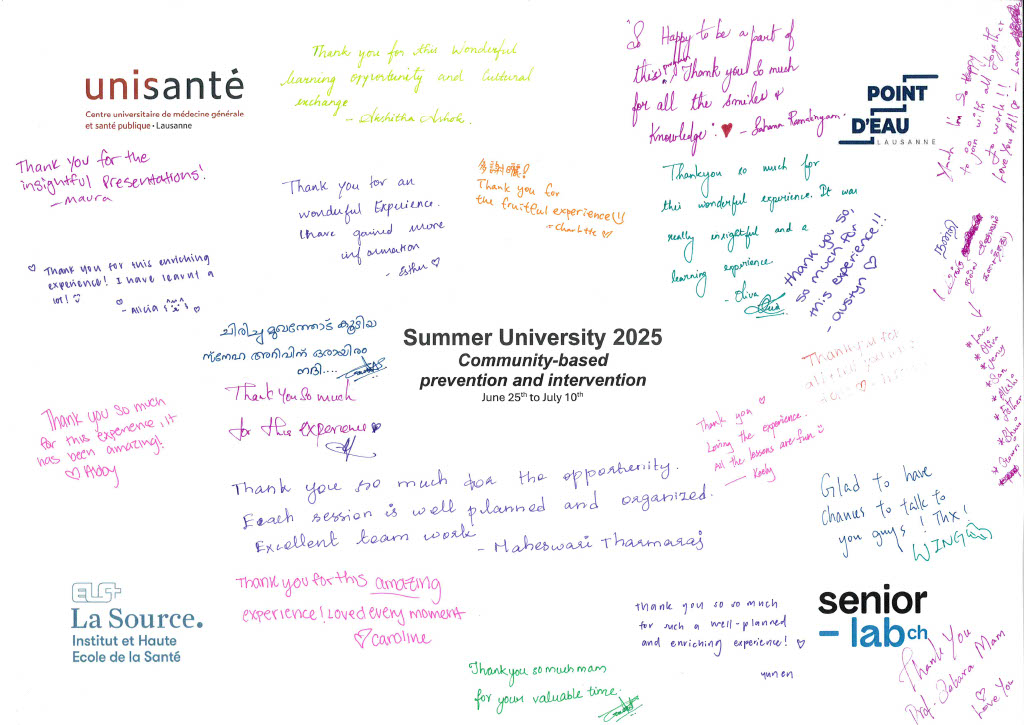 Thank you for this wonderful
learning opportunity and Cultural
exchange
- Akshitha Ashok.
"So Happy to be a part of
this!! Thank you So much
for all the smiles &
Knowledge". - Sahana Ramalingam.
unisanté
Centre universitaire de médecine générale
et santé publique • Lausanne
POINT
D'EAU
LAUSANNE
Yeah I'm So Happy
to join with all together
to work!!!
Love You All
Thank you for the
insightful Presentations!
- maura
Thank you for an
wonderful Experience.
I have gained more
information
- Esther
多謝囉!
Thank you for
the fruitful experience!!
- Charlotte
Thankyou so much for
this wonderful experience. It was
really insightful and a
learning experience
- Oliva
thank you so,
so much for
this experience!!
- austyn
நன்றி
Thank you for this enriching
experience! I have learnt a
lot!
- Alicia
ചിരിച്ച മുഖത്തോട് കൂടിയ
സ്നേഹ അറിവിന് ഒരായിരം
നന്ദി....
Summer University 2025
Community-based
prevention and intervention
June 25th to July 10th
Thankful for
* Love
* Oliva
* Jenny
* San
* Akshi
* Esther
Thank you so much
for this experience, it
has been amazing!
Abby
Thank You So much
for this experience
Thank you
Loving the experience.
All the lessons are fun
Thank you so much for the opportunity.
Each session is well planned and organized.
Excellent team work
- Maheswari Tharmaraj
Glad to have
chances to talk to
you guys! Thx!
WING
ELS+
La Source.
Institut et Haute
Ecole de la Santé
Thank you for this amazing
experience! Loved every moment
Caroline
thank you so so much
for such a well-planned
and enriching experience!
yun en
senior
- lab ch
Thank you so much mam
for your valuable time.
Thank You
Prof. Zahara Mam
Love You